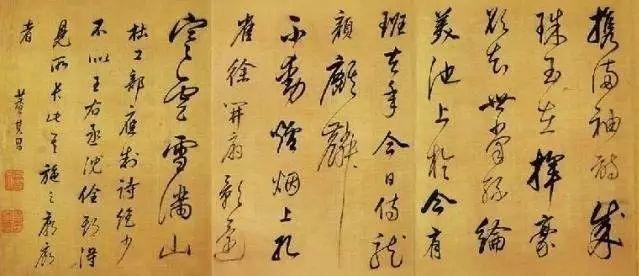 攜滿袖詩成
珠玉在揮毫
欲知世掌絲綸
美池上於今有
班去年今日侍龍
顏麒麟
不動爐烟上孔
雀徐開扇影還
寒雲雪滿山
杜工部應制詩絕少
不似王右丞沈佺期得
見所長此其施之廊廟
者
董其昌